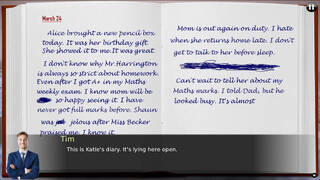 March 24
Alice brought a new pencil box
today. It was her birthday gift.
She showed it to me. It was great.
I don't know why Mr Harrington
is always so strict about homework.
Even after I got A+ in my Maths
weekly exam. I know mom will be
so happy seeing it. I have
never got full marks before. Shaun
was jelous after Miss Becker
praised me. I know it.
Mom is out again on duty. I hate
when she returns home late. I don't
get to talk to her before sleep.
Can't wait to tell her about my
Maths marks. I told Dad, but he
looked busy. It's almost
Tim
This is Katie's diary. It's lying here open.